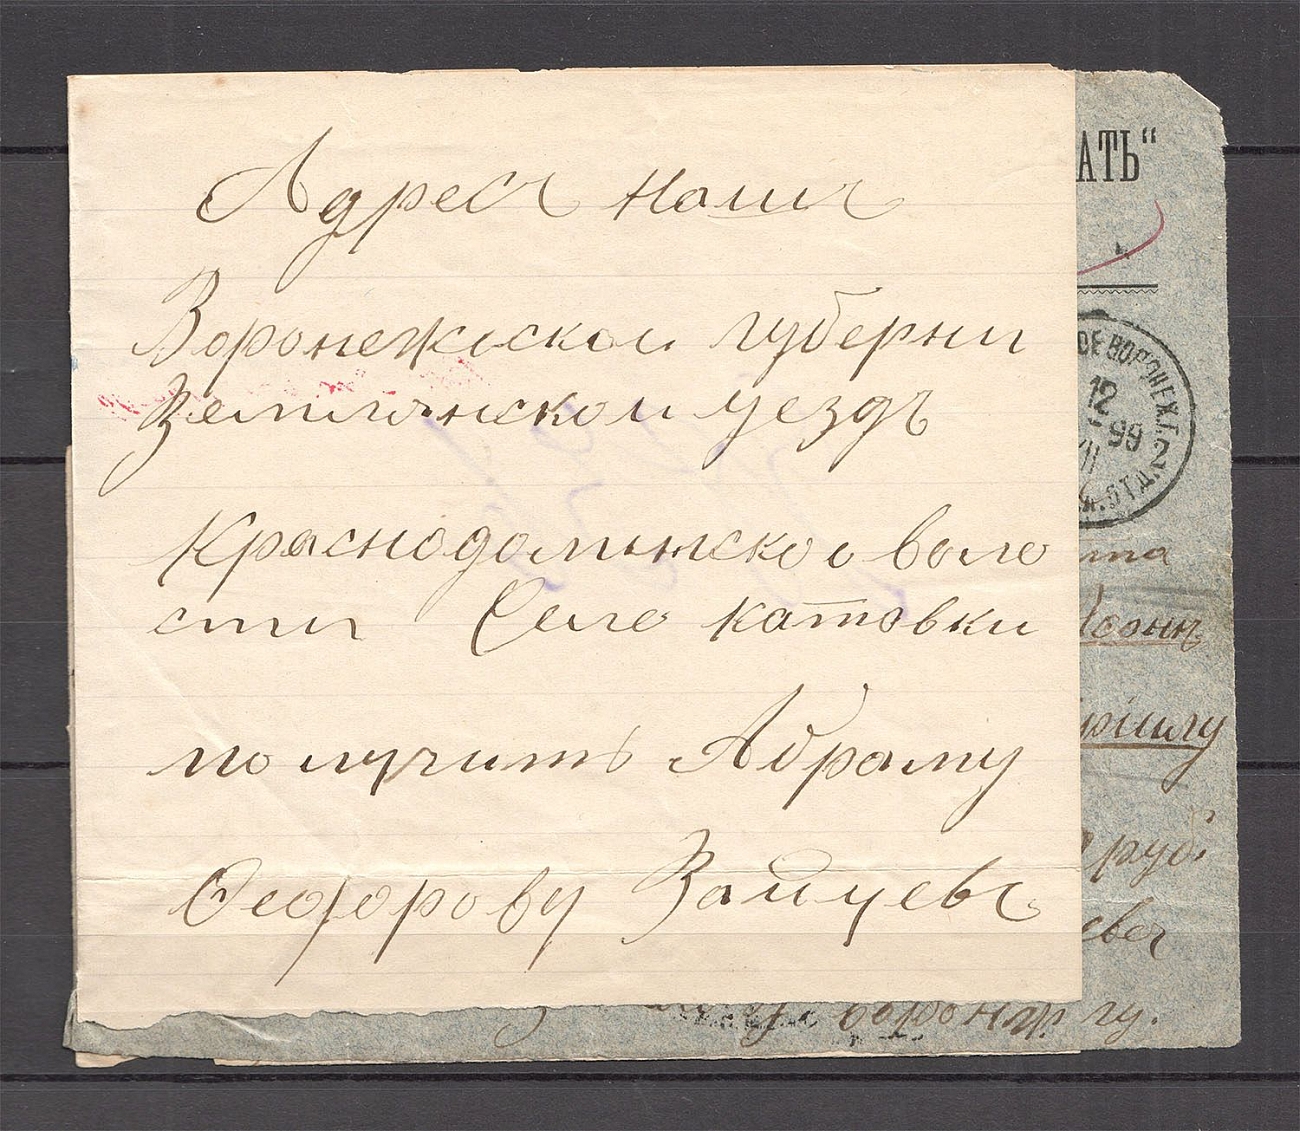 Адресъ нашъ
Воронежской губерни
Землянской уездъ
Краснодолинской воло
сти Село катовки
получить Абраму
Феофорову Зайцевъ
АТЬ“
ВОРОНЕЖ.Г.
12
99
VII
2
ОТД.
Воронжр гу.